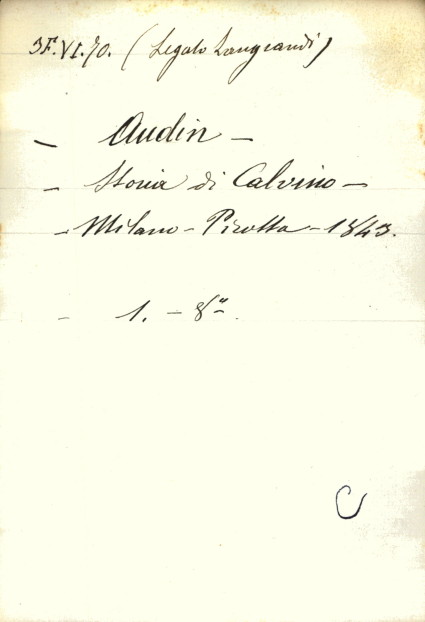 3F.VI.70. (Legato Langrandi)
— Audin —
— Storia di Calvino —
— Milano - Pirotta - 1843.
— 1. — 8º.
C